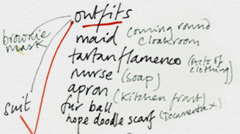 outfits
brownie mask
maid (coming round cloakroom
tartan flamenco (facts of clothing)
nurse (soap)
apron (kitchen front)
suit
fur ball
rope doodle scarf (documenta x)